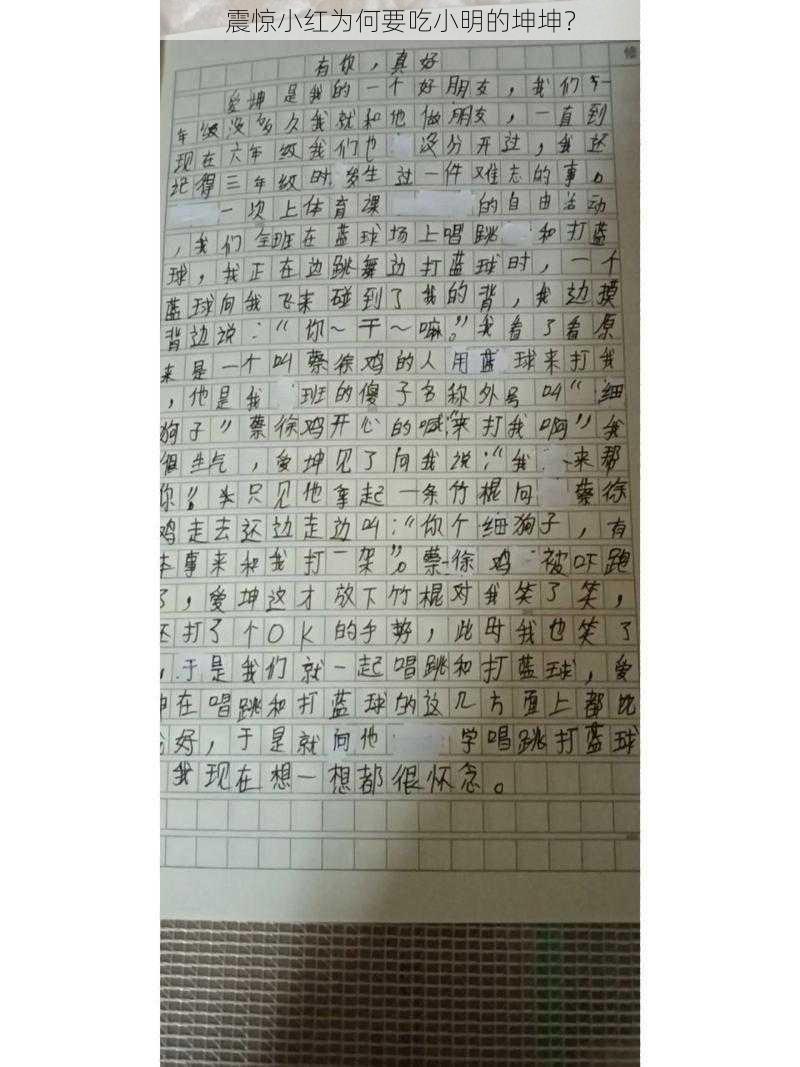 震惊小红为何要吃小明的坤坤？
有你，真好
爱坤是我的一个好朋友，我们
年级没多久我就和他做朋友，一直到
现在六年级我们也没分开过，我还
记得三年级时，发生过一件难忘的事。
一次上体育课的自由活动
，我们全班在蓝球场上唱跳和打蓝
球，我正在边跳舞边打蓝球时，一个
蓝球向我飞来碰到了我的背，我边摸
背边说：“你～干～嘛。”我看了看原
来是一个叫蔡徐鸡的人用蓝球来打我
，他是我班的傻子名称外号叫“细
狗子”蔡徐鸡开心的喊“来打我啊”我
很生气，爱坤见了向我说：“我来帮
你”。只见他拿起一条竹棍向蔡徐
鸡走去还边走边叫：“你个细狗子，有
本事来和我打一架”。蔡徐鸡被吓跑
了，爱坤这才放下竹棍对我笑了笑，
还打了个OK的手势，此时我也笑了
，于是我们就一起唱跳和打蓝球，爱
坤在唱跳和打蓝球的这几方面上都比
我好，于是就向他学唱跳打蓝球
我现在想一想都很怀念。